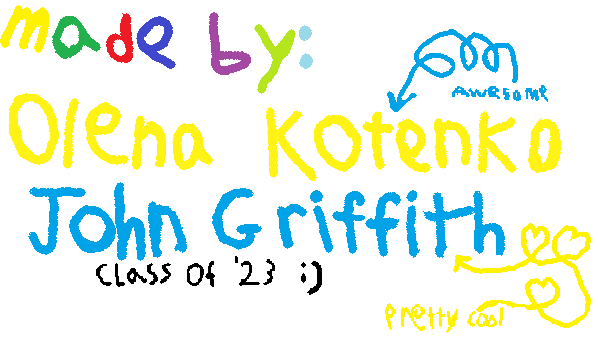 made by:
awesome
Olena Kotenko
John Griffith
class of '23 :)
pretty cool